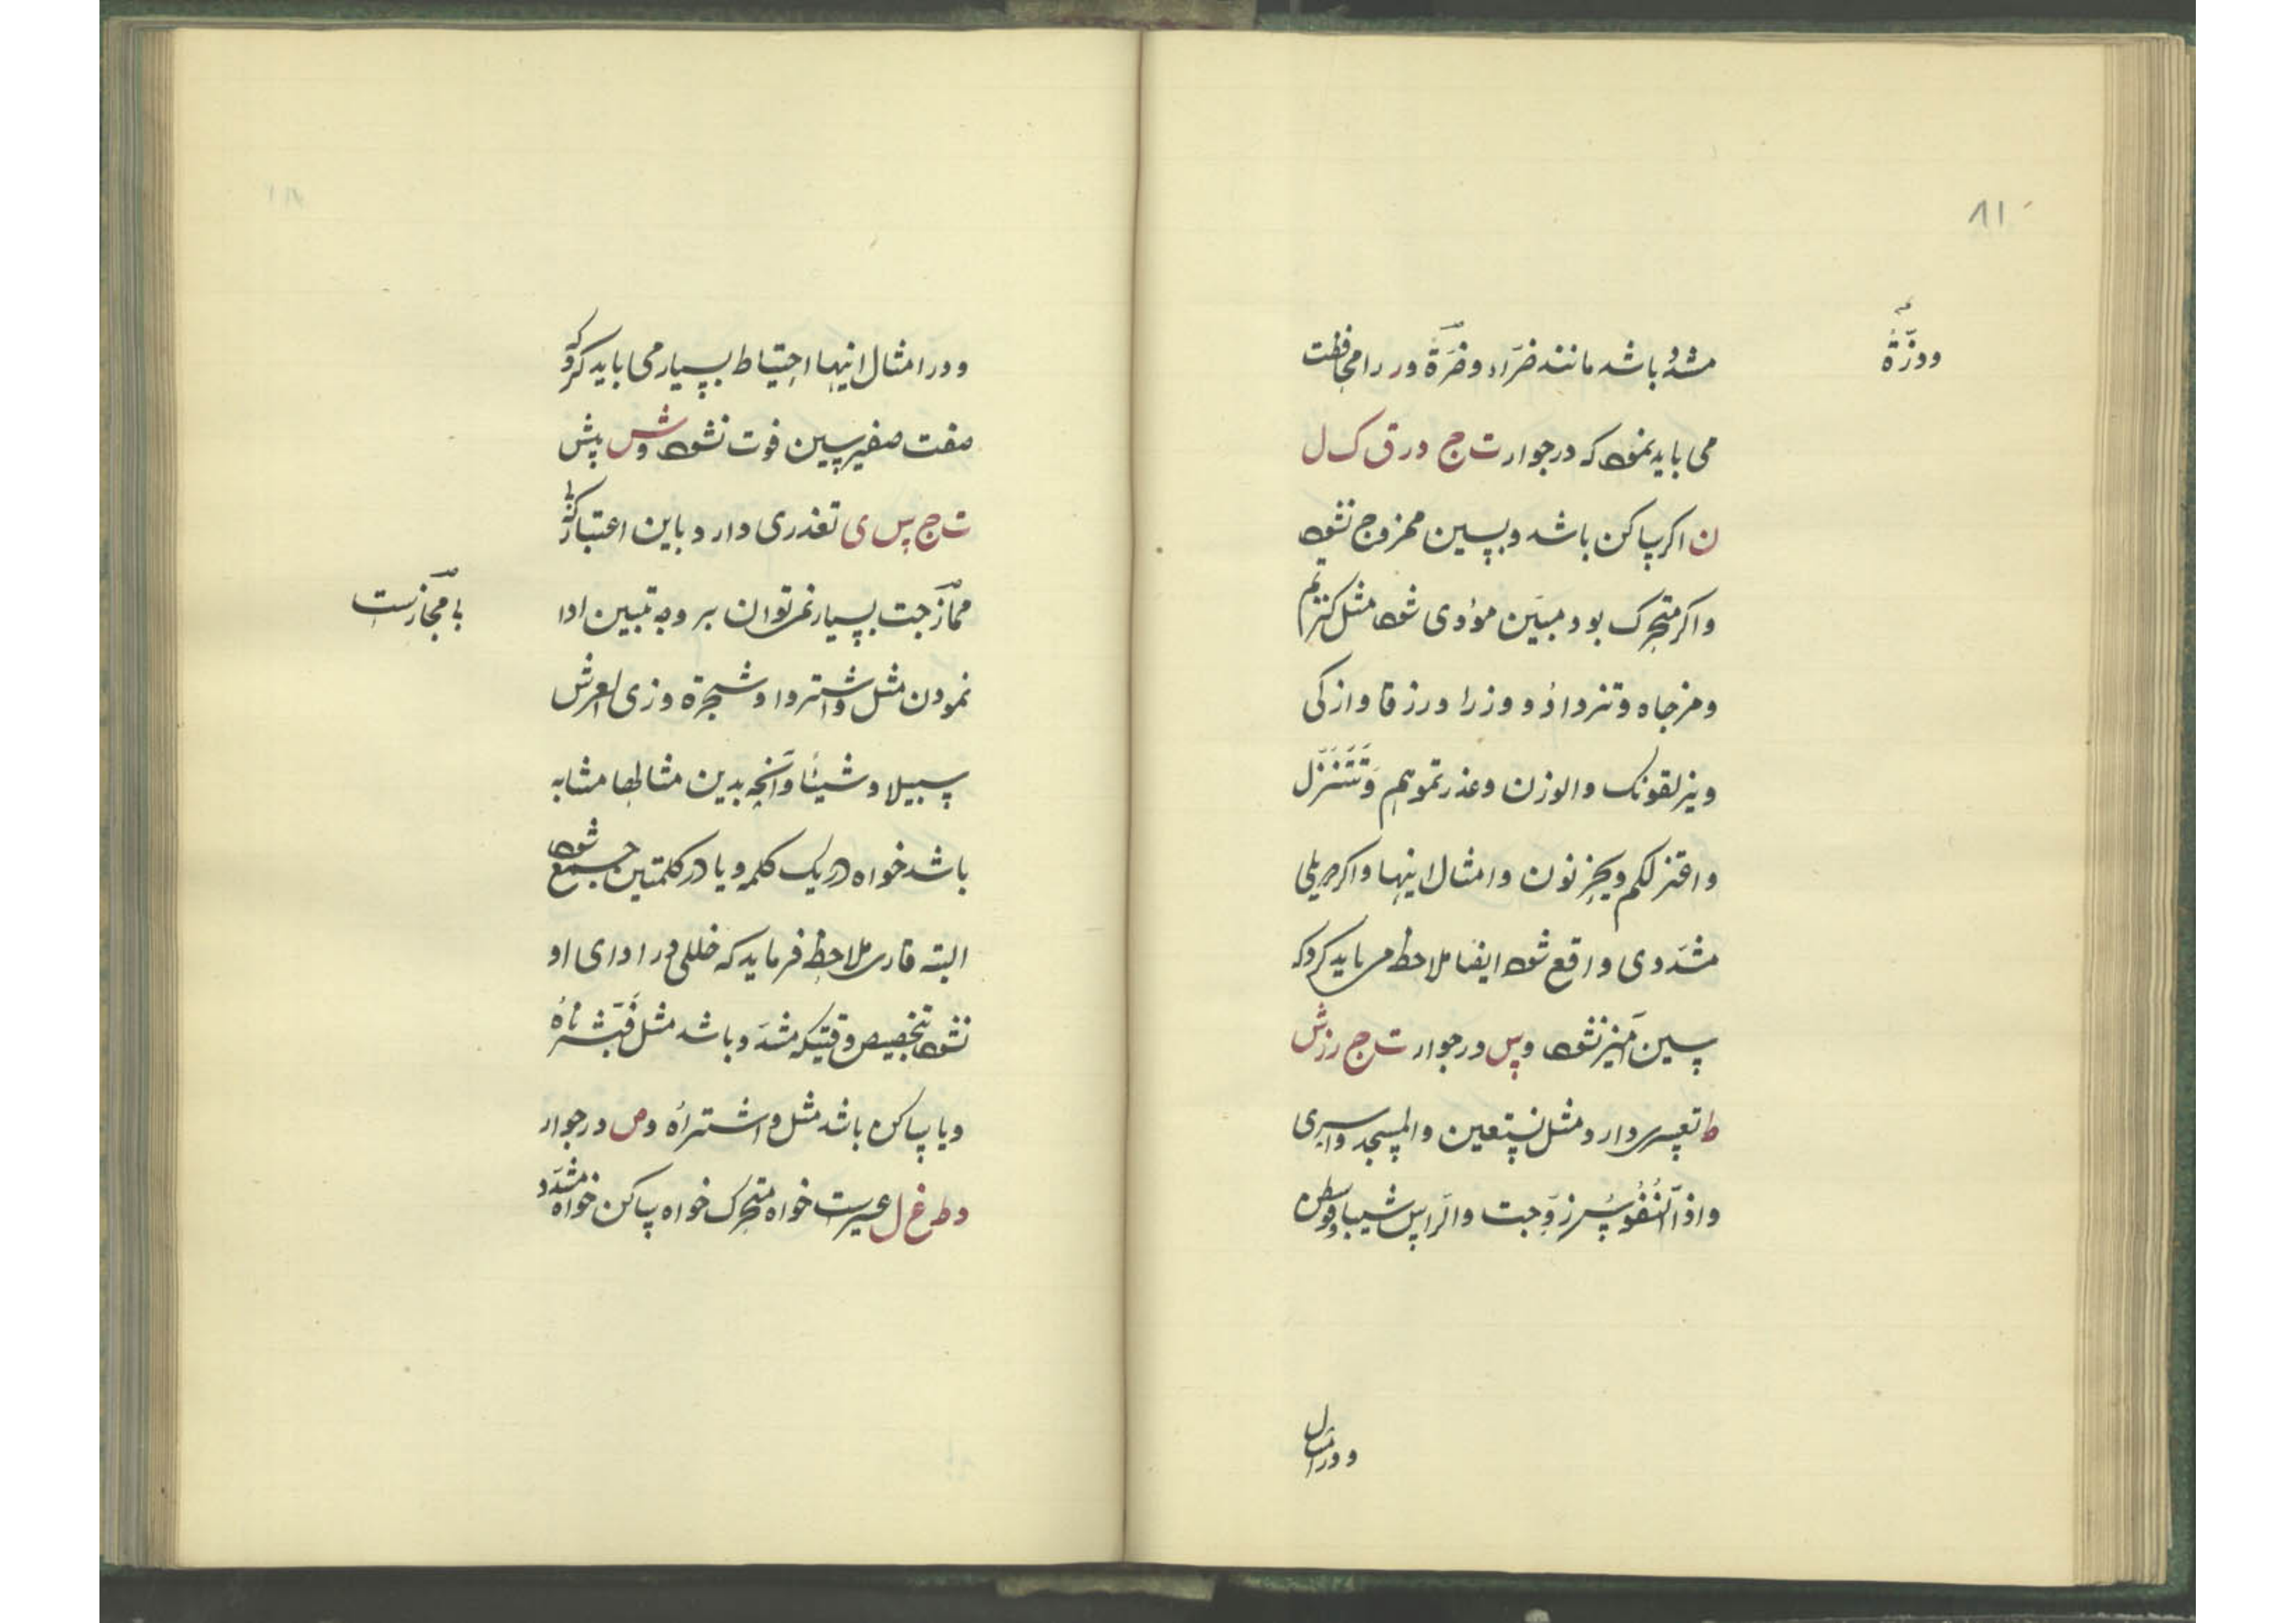 ۸۱
ودرّة
مشدد باشد مانند ضرّاء وضرّة و ر را محافظت
می باید نمود که در جوار ت ج د ر ق ک ل
ن اکر ساکن باشد و بسین ممزوج نشود
واکر متحرک بود مبیّن مؤدی شود مثل کنزتم
ومزجاه وتزداد و وزرا ورزقا وازکی
ویزلقونک والوزن وعذرتموهم وَتَتَنَزَّل
وامثال اینها واکر
مشدّدی واقع شود ایضا ملاحظ می باید کرد که
سین آمیز نشود و س در جوار ت ج ر ز ش
ط تعسری دارد مثل نستعین والمسجد واسری
واذا النُفُوسُ زوّجت والراس شیبا ووسطن
ودر امثال
ودر امثال اینها احتیاط بسیار می باید کرد که
صفت صفیر سین فوت نشود و ش پیش
ت ج س ی تعذری دارد باین اعتبار که
مجازجت بسیار نمی توان بر وجه تبیین ادا
بی مجازست
نمودن مثل واشتروا وشجرة وذی العرش
سبیلا وشیئا وآنچه بدین مثالها مشابه
باشد خواه در یک کلمه ویا در کلمتین جمع شود
البته قاری ملاحظ فرماید که خللی در ادای او
نشود بتخصیص وقتیکه مشدّد باشد مثل فَبَشَّرناهُ
ویا ساکن باشد مثل واشتراه و ص در جوار
د ط غ ل عسیرست خواه متحرک خواه ساکن خواه مشدّد